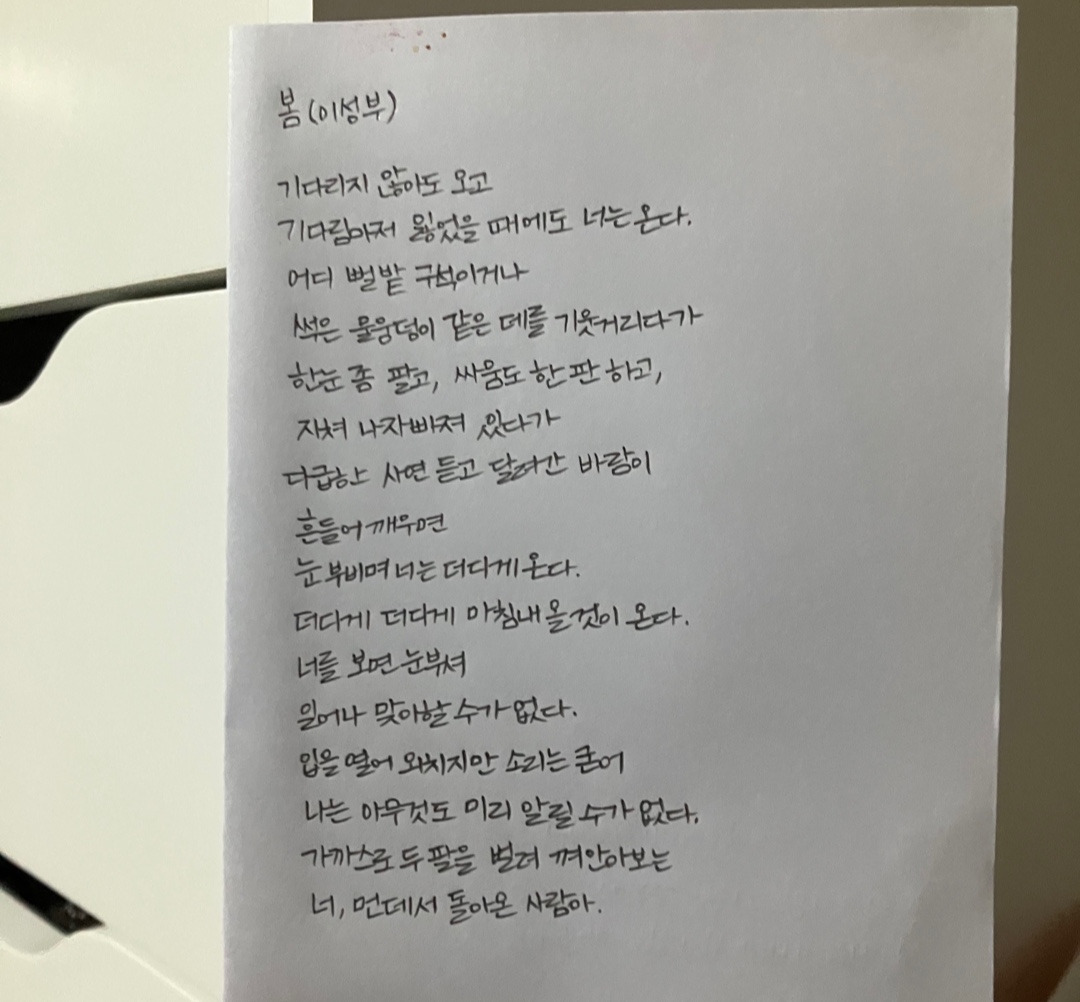 봄 (이성부)
기다리지 않아도 오고
기다림마저 잃었을 때에도 너는 온다.
어디 뻘밭 구석이거나
썩은 물웅덩이 같은 데를 기웃거리다가
한눈 좀 팔고, 싸움도 한 판 하고,
지쳐 나자빠져 있다가
다급한 사연 듣고 달려간 바람이
흔들어 깨우면
눈 부비며 너는 더디게 온다.
더디게 더디게 마침내 올 것이 온다.
너를 보면 눈부셔
일어나 맞이할 수가 없다.
입을 열어 외치지만 소리는 굳어
나는 아무것도 미리 알릴 수가 없다.
가까스로 두 팔을 벌려 껴안아보는
너, 먼데서 돌아온 사람아.